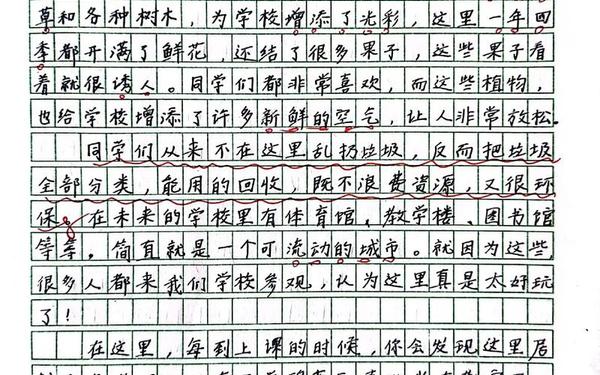 草和各种树木，为学校增添了光彩，这里一年四
季都开满了鲜花，还结了很多果子，这些果子看
着就很诱人。同学们都非常喜欢，而这些植物，
也给学校增添了许多新鲜的空气，让人非常放松。
同学们从来不在这里乱扔垃圾，反而把垃圾
全部分类，能用的回收，既不浪费资源，又很环
保。在未来的学校里有体育馆、教学楼、图书馆
等等。简直就是一个可流动的城市。就因为这些，
很多人都来我们学校参观，认为这里真是太好玩
了！
在这里，每到上课的时候，你会发现这里居